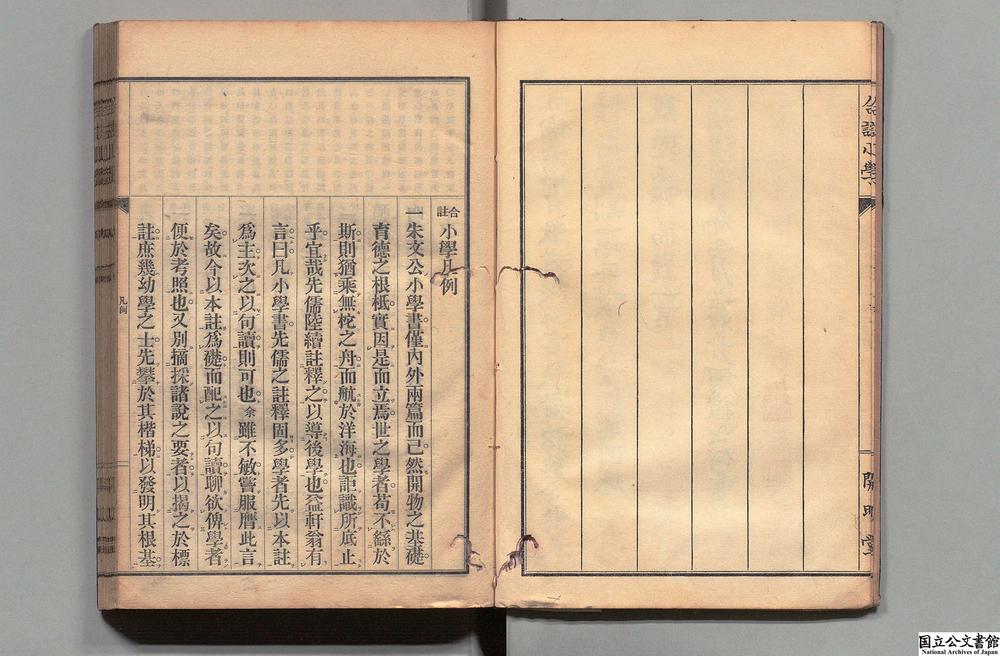 合註小學
開明堂
合註 小學凡例
一朱文公小學書僅內外兩篇而已然開物之基礎
育德之根柢實因是而立焉世之學者苟不繇於
斯則猶乘無柁之舟而航於洋海也詎識所底止
乎宜哉先儒陸續註釋之以導後學也益軒翁有
言曰凡小學書先儒之註釋固多學者先以本註
爲主次之以句讀則可也余雖不敏嘗服膺此言
矣故今以本註爲礎而配之以句讀聊欲俾學者
便於考照也又別摘採諸說之要者以揭之於標
註庶幾幼學之士先攀於其楷梯以發明其根基
凡例
国立公文書館
National Archives of Japan